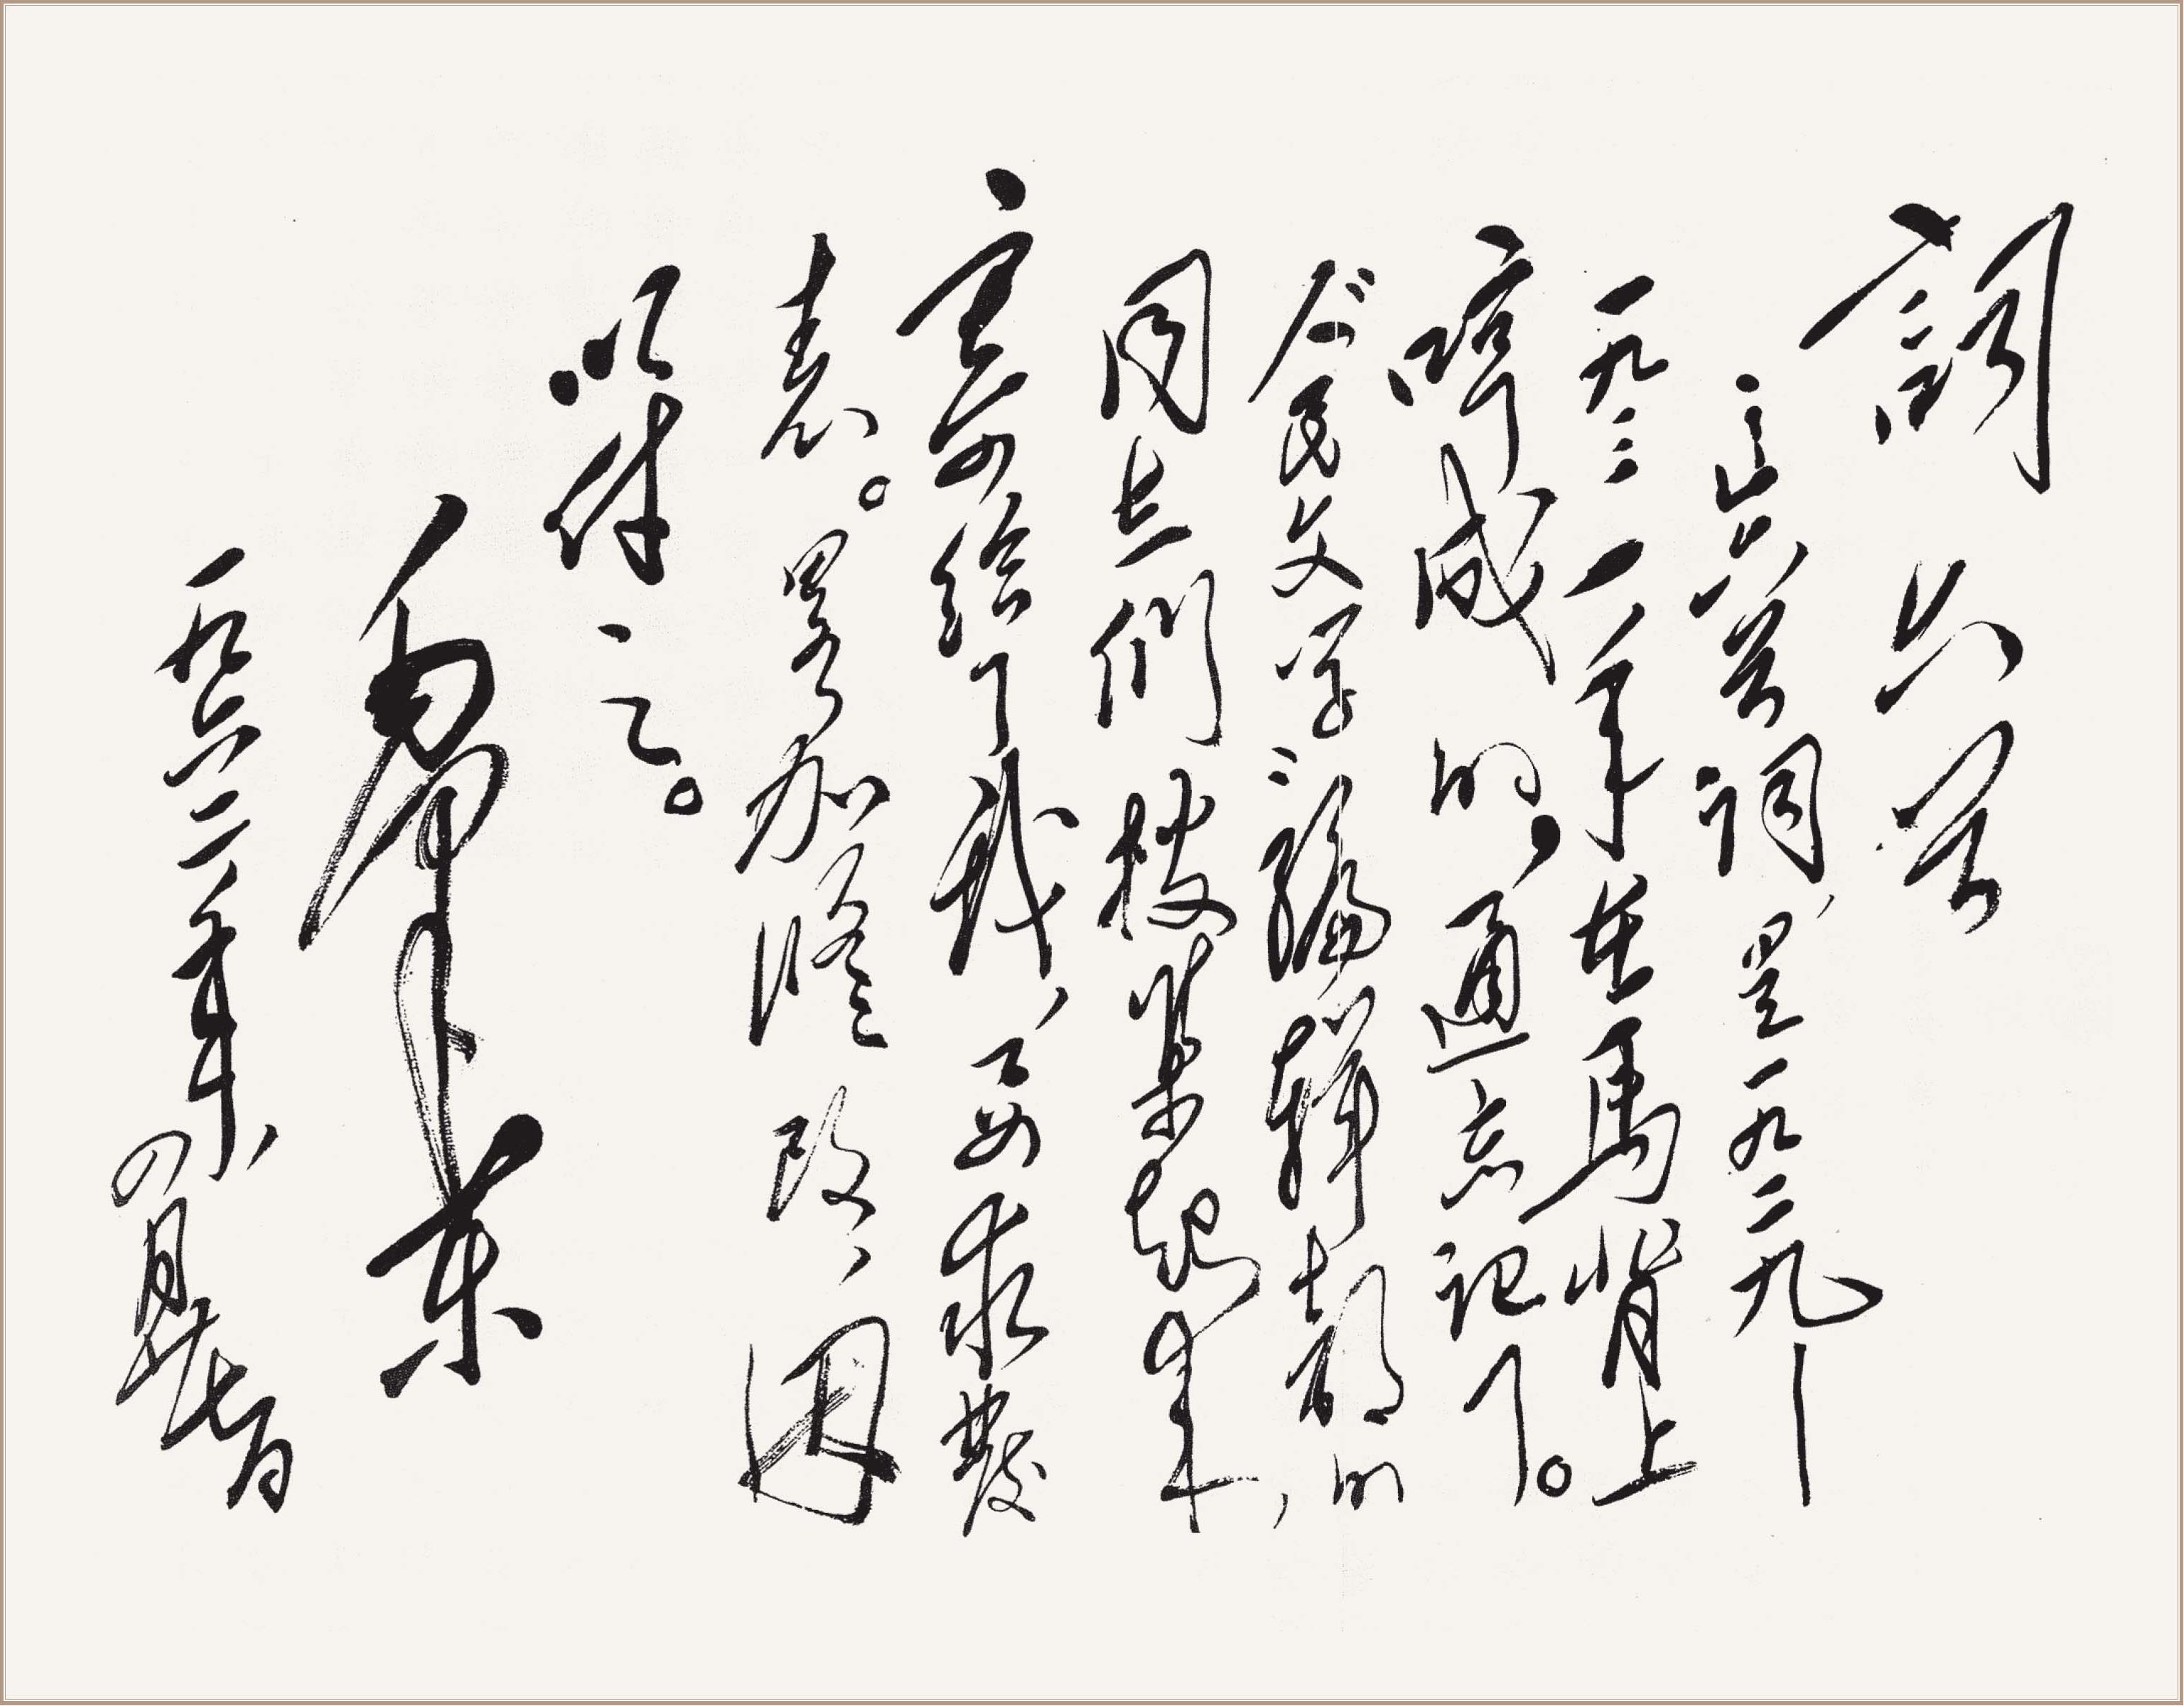 詞六首
這六首詞，是一九二九—
一九三一年在馬背上
哼成的，通忘記了。
人民文学編輯部的
同志們搜集起来，
寄給了我，要求發
表。畧加修改，因
以付之。
毛澤东
一九六二年四月廿七日